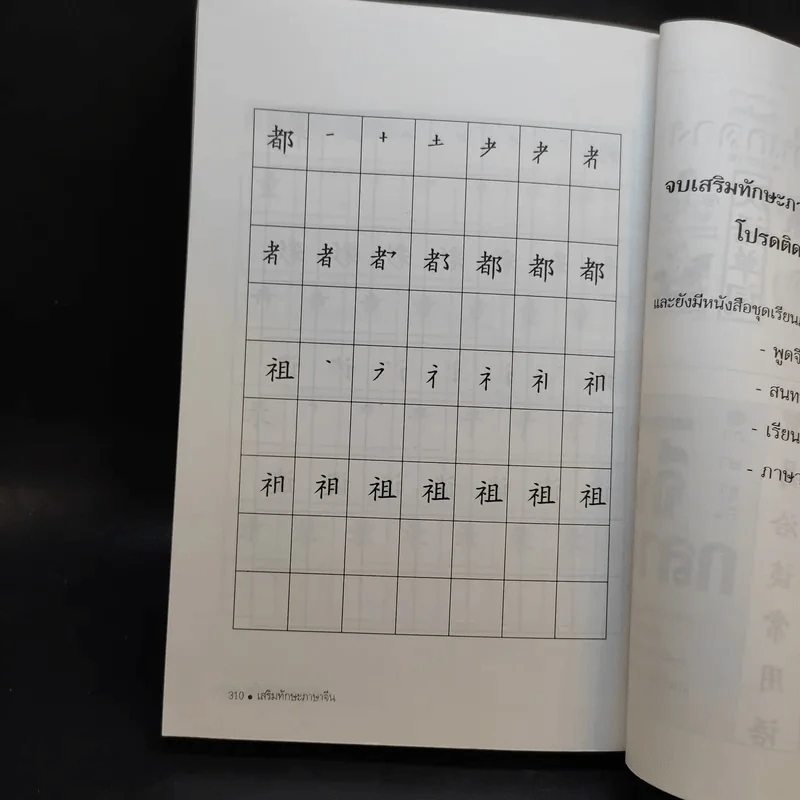 都 一 十 土 耂 才 者
者 者 者 都 都 都 都
祖 丶 ラ 礻 礻 礼 初
祁 祖 祖 祖 祖 祖 祖
310 ● เสริมทักษะภาษาจีน
จบเสริมทักษะภา
โปรดติด
และยังมีหนังสือชุดเรียน
- พูดจี
- สนท
- เรียน
- ภาษา